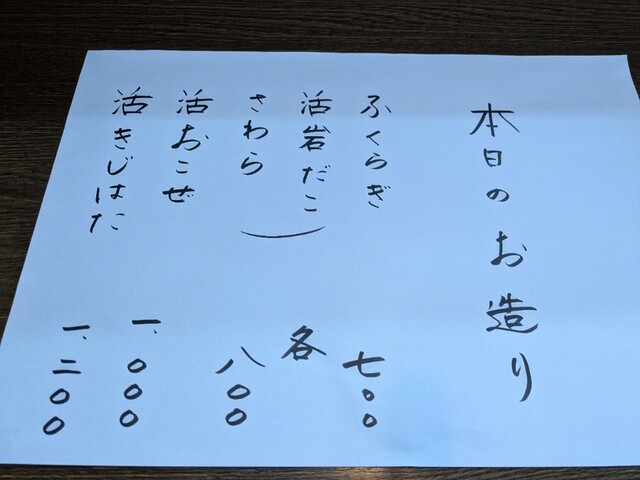 本日のお造り
ふくらぎ 七〇〇
活岩だこ
さわら
各 八〇〇
活おこぜ 一、〇〇〇
活きじはた 一、二〇〇